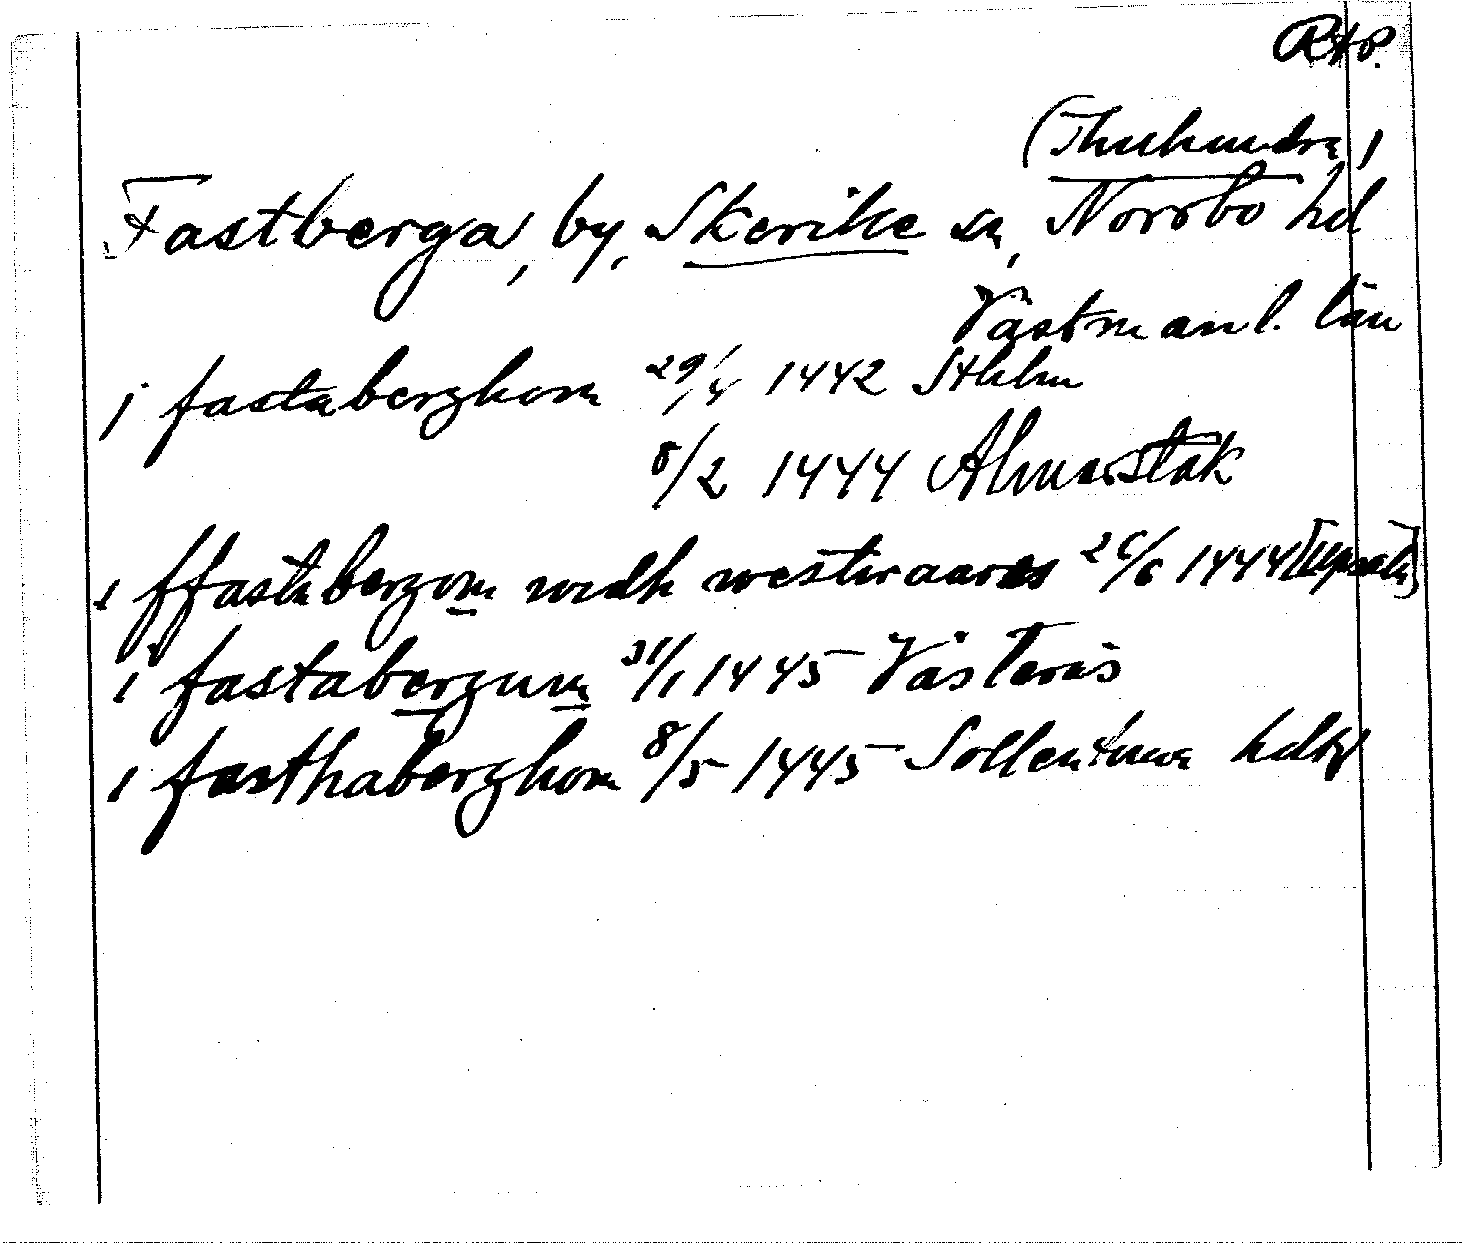 RAP.
(Tiuhundra)
Fastberga, by, Skerike sn, Norrbo hd
Västmanl. län
j fastaberghom 29/4 1442 Sthlm
8/2 1444 Almarstäk
i ffastabergom widh westwaaros 26/6 1444 [Uppsala]
i fastabergum 31/1 1445 Västerås
i fasthaberghom 8/5 1445 Sollentuna hdtg